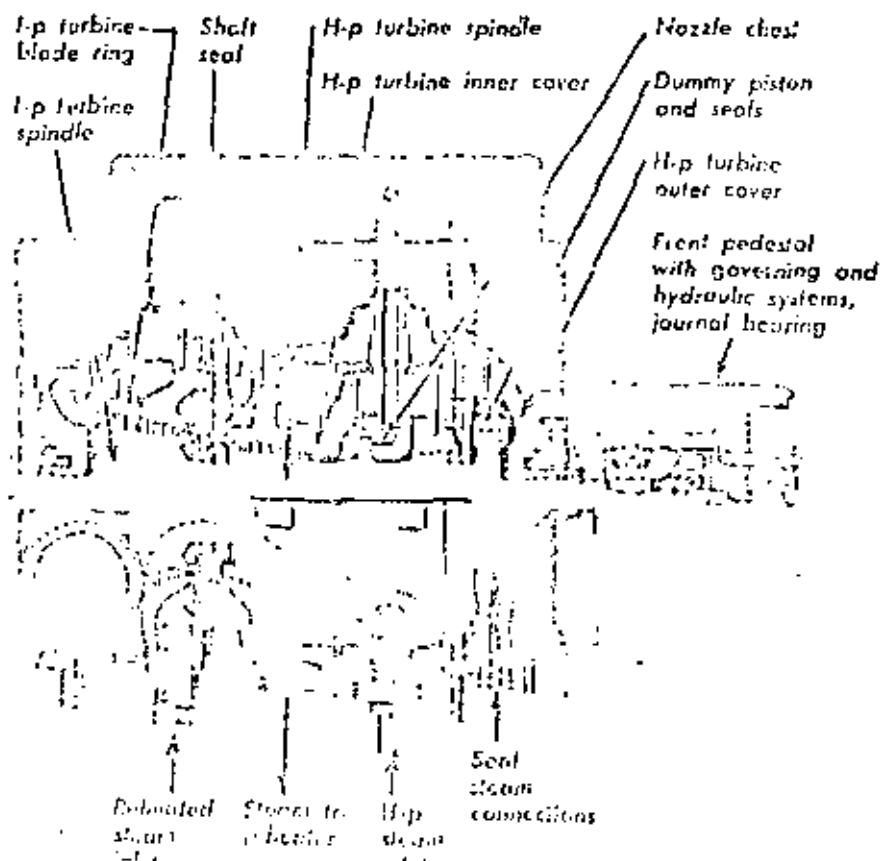 I-p turbine
blade ring
Shaft
seal
H-p turbine spindle
H-p turbine inner cover
Nozzle chest
Dummy piston
and seals
H-p turbine
outer cover
I-p turbine
spindle
Front pedestal
with governing and
hydraulic systems,
journal bearing
steam
connections
Steam to
H-p
steam
steam